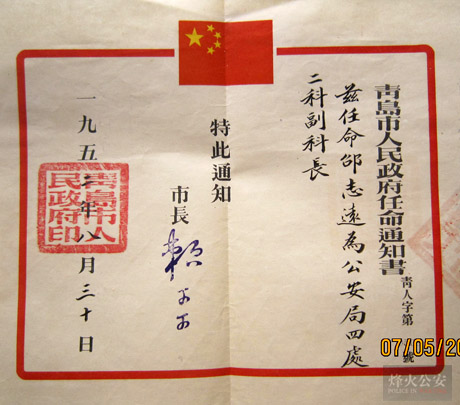 青島市人民政府任命通知書
青人字第 號
茲任命邵志遠為公安局四處
二科副科長
特此通知
市長 賴可可
一九五二年八月三十日
青島市人民政府印
07/05/20
烽火公安